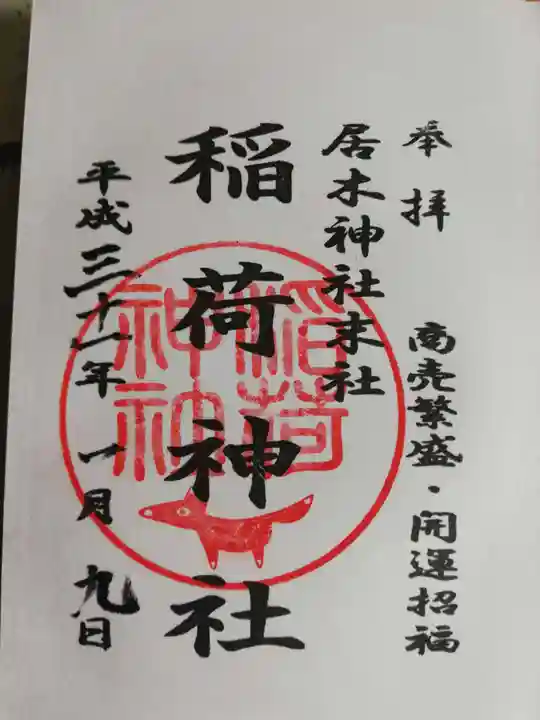 奉拝 商売繁盛・開運招福
居木神社末社
稲荷神社
稲荷神社
平成三十一年 一月 九日